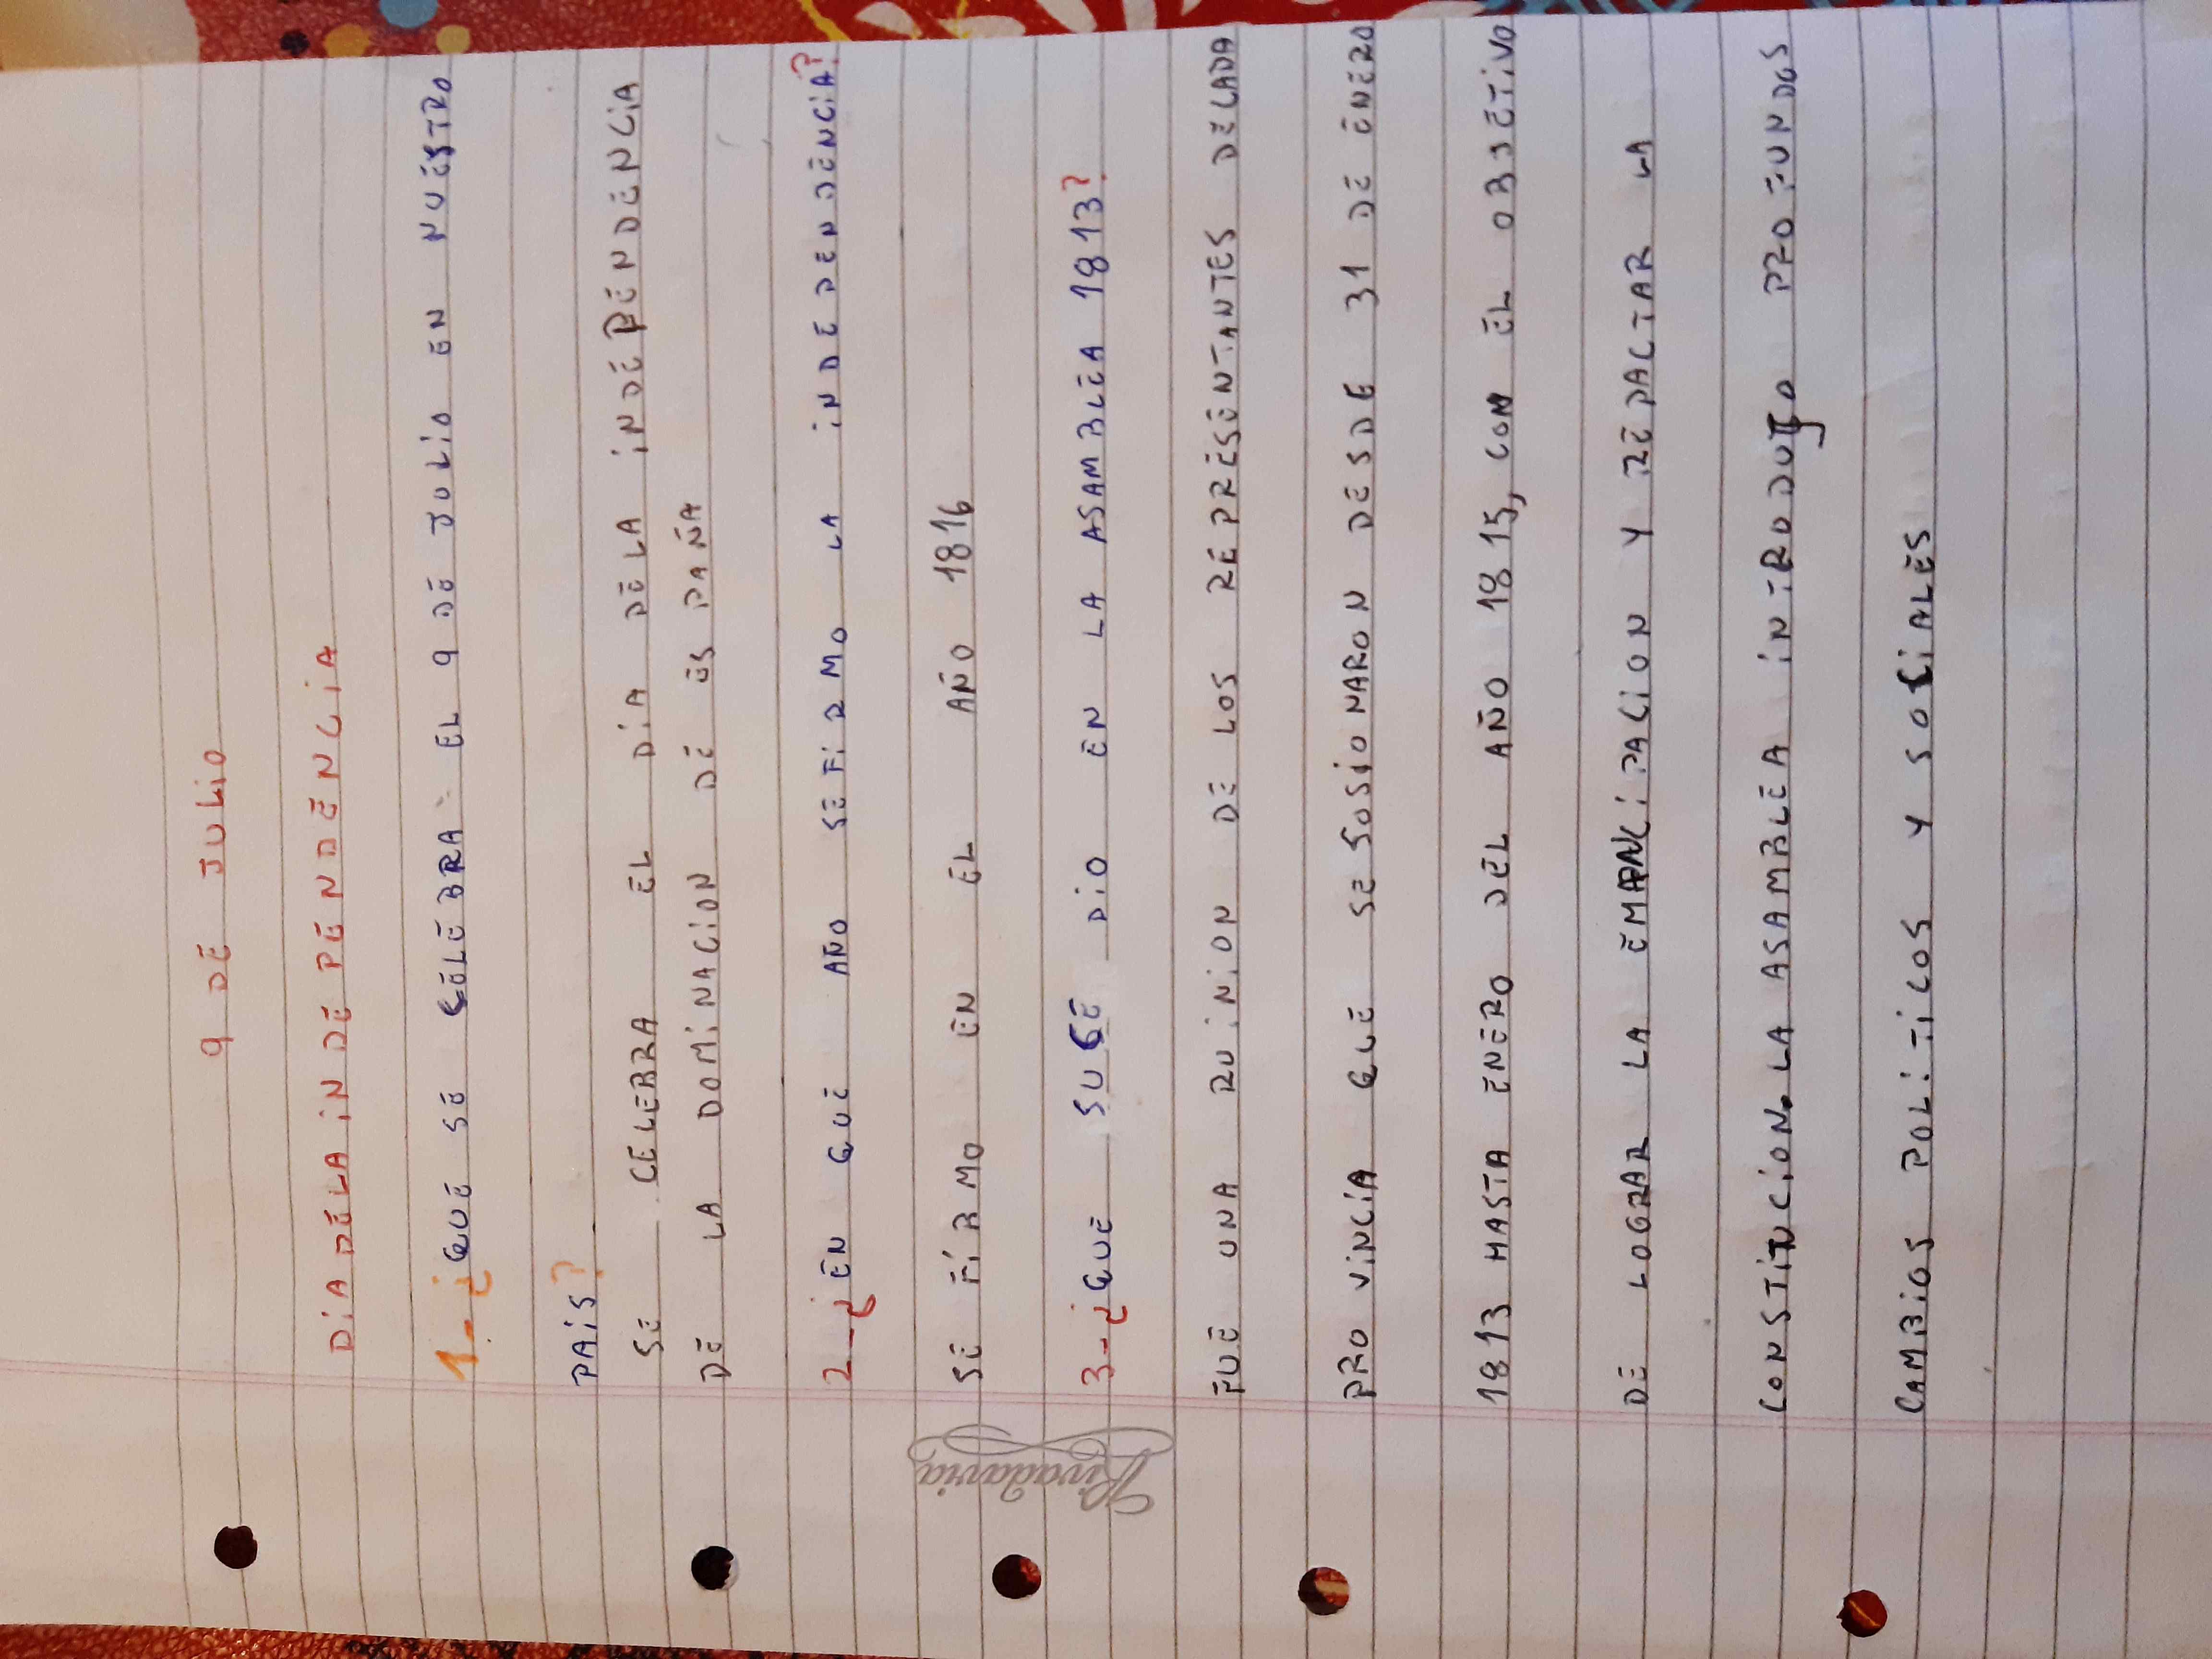 9 DE JULIO
DIA DELA INDE PENDENCIA
1-¿QUE SE CELEBRA EL 9 DE JULIO EN NUESTRO
PAIS?
SE CELEBRA EL DIA DELA INDEPENDENCIA
DE LA DOMINACION DE ES PAÑA
2-¿EN QUE AÑO SEFIRMO LA INDE DEN DENCIA?
SE FIRMO EN EL AÑO 1816
3-¿QUE SUCE DIO EN LA ASAMBLEA 1813?
FUE UNA RUINION DE LOS REPRESENTANTES DE CADA
PRO VINCIA QUE SE SOSIONARON DESDE 31 DE ENERO
1813 HASTA ENERO DEL AÑO 1815, CON EL OBJETIVO
DE LOGRAR LA EMANCIPACION Y REDACTAR LA
CONSTITUCION. LA ASAMBLEA INTRODUJO PROFUNDOS
CAMBIOS POLITICOS Y SOCIALES
Rivadavia